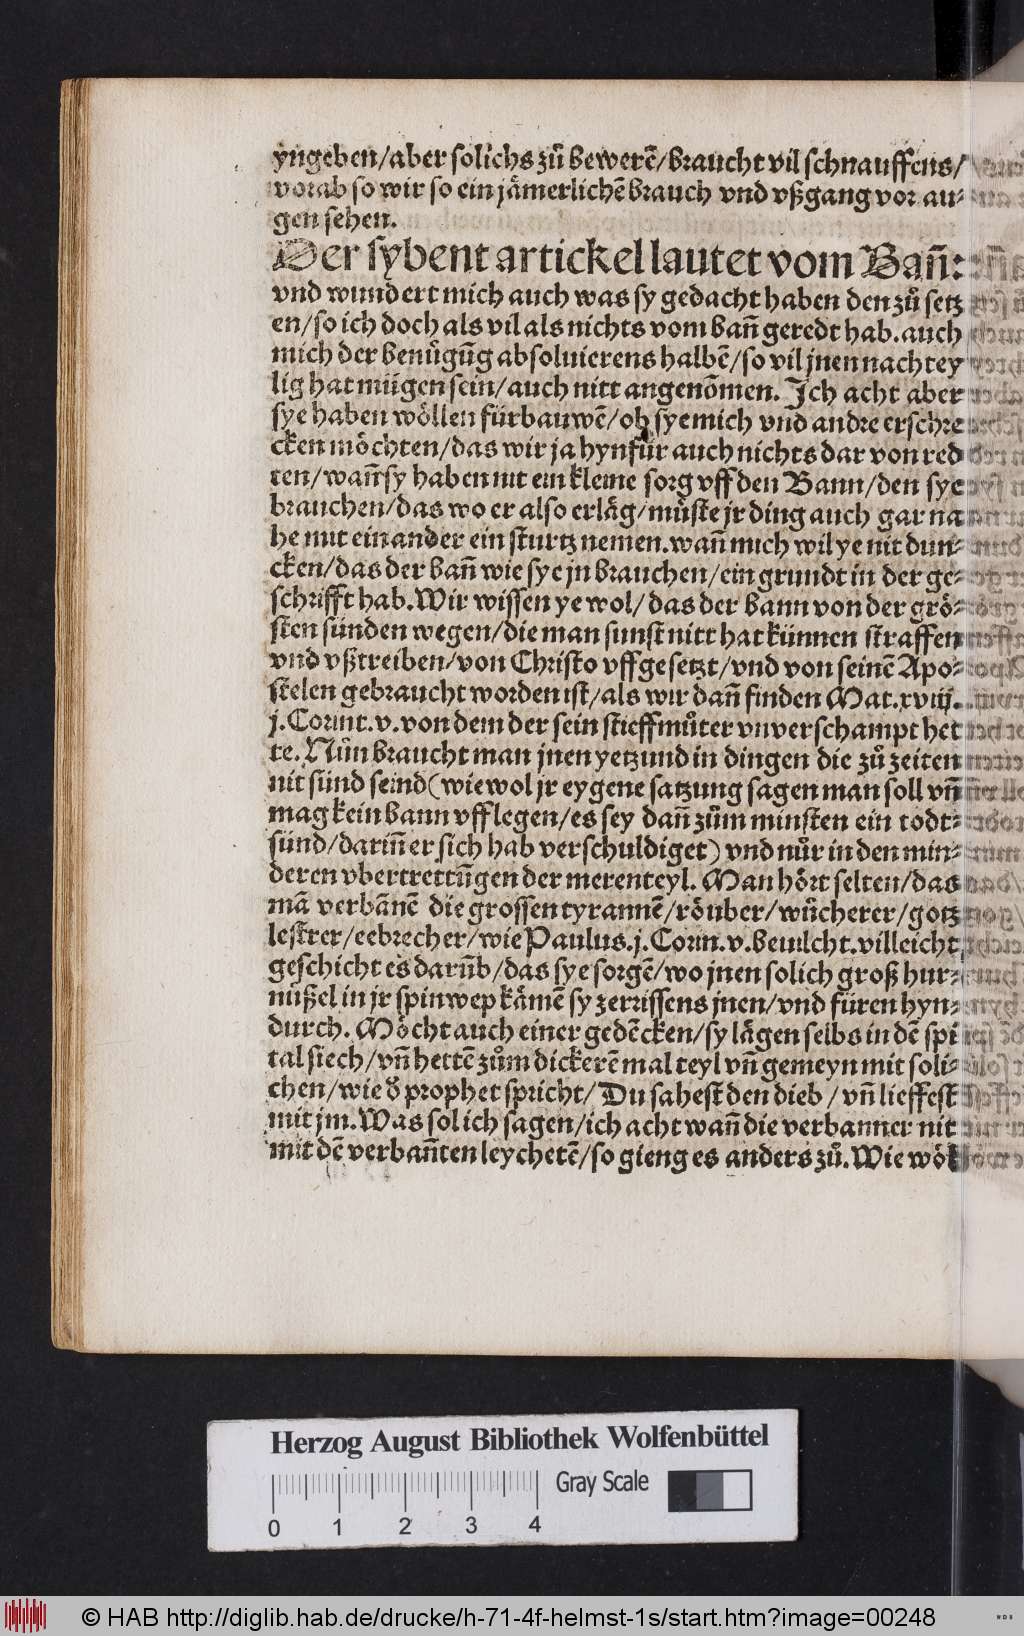 yngeben/aber solichs zuͦ bewerē/braucht vil schnauffens/
vorab so wir so ein jaͤmerlichē brauch vnd vßgang vor au⸗
gen sehen.
Der sybent artickel lautet vom Bañ:
vnd wundert mich auch was sy gedacht haben den zuͦ setz
en/so ich doch als vil als nichts vom bañ geredt hab. auch
mich der benuͤgūg absoluierens halbē/so vil jnen nachtey
lig hat muͤgen sein/auch nitt angenōmen. Ich acht aber
sye haben woͤllen fürbauwē/ob sye mich vnd andre erschre
cken moͤchten/das wir ja hynfür auch nichts dar von red
ten/wañ sy haben nit ein kleine sorg vff den Bann/den sye
brauchen/das wo er also erlaͤg/muͤste jr ding auch gar na
he mit einander ein sturtz nemen. wañ mich wil ye nit dun⸗
cken/das der bañ wie sye jn brauchen/ein grundt in der ge⸗
schrifft hab. Wir wissen ye wol/das der bann von der groͤ⸗
sten sünden wegen/die man sunst nitt hat künnen straffen
vnd vßtreiben/von Christo vffgesetzt/vnd von seinē Apo⸗
stelen gebraucht worden ist/als wir dañ finden Mat. xviij.
j. Corint. v. von dem der sein stieffmuͦter vnverschampt het
te. Nuͦn braucht man jnen yetzund in dingen die zuͦ zeiten
nit sünd seind (wiewol jr eygene satzung sagen man soll vñ
mag kein bann vfflegen/es sey dañ zuͦm minsten ein todt⸗
sünd/dariñ er sich hab verschuldiget) vnd nuͦr in den min⸗
deren vbertrettūgen der merenteyl. Man hoͤrt selten/das
mā verbānē die grossen tyrannē/roͤuber/wuͦcherer/gotz
lestrer/eebrecher/wie Paulus. j. Corin. v. beuilcht. villeicht
geschicht es darūb/das sye sorgē/wo jnen solich groß hur⸗
nüßel in jr spinwep kaͤmē sy zerrissens jnen/vnd füren hyn⸗
durch. Moͤcht auch einer gedēcken/sy laͤgen selbs in dē spi
tal siech/vñ hettē zuͦm dickerē mal teyl vñ gemeyn mit soli⸗
chen/wie d̓ prophet spricht/Du sahest den dieb/vñ lieffest
mit jm. Was sol ich sagen/ich acht wañ die verbanner nit
mit dē verbañten leychetē/so gieng es anders zuͦ. Wie woͤl
Herzog August Bibliothek Wolfenbüttel
Gray Scale
0 1 2 3 4
© HAB http://diglib.hab.de/drucke/h-71-4f-helmst-1s/start.htm?image=00248